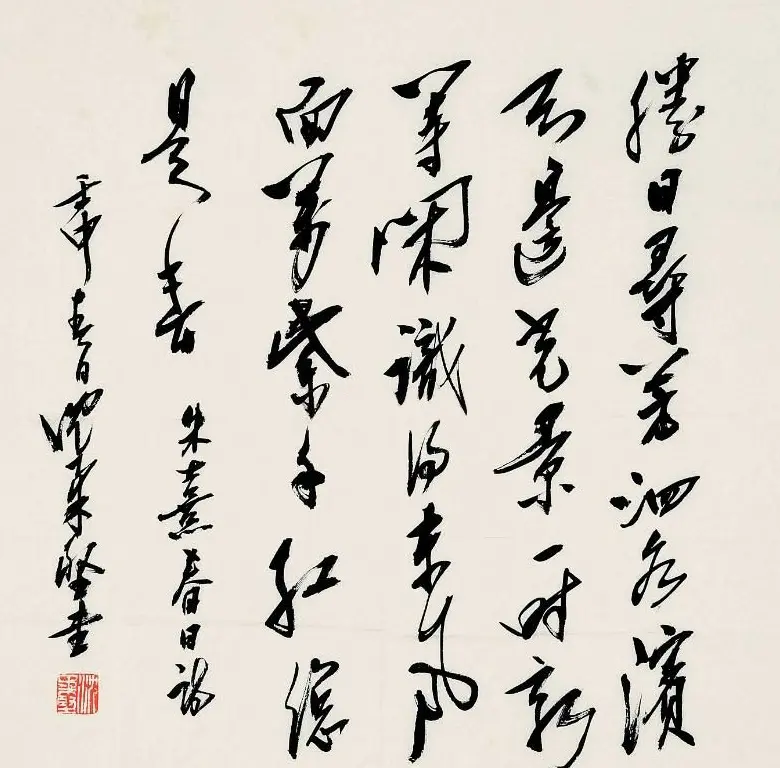 勝日尋芳泗水濱
无邊光景一时新
等閑識得東風
面萬紫千紅總
是春 朱熹春日詩
壬申春日 堅書